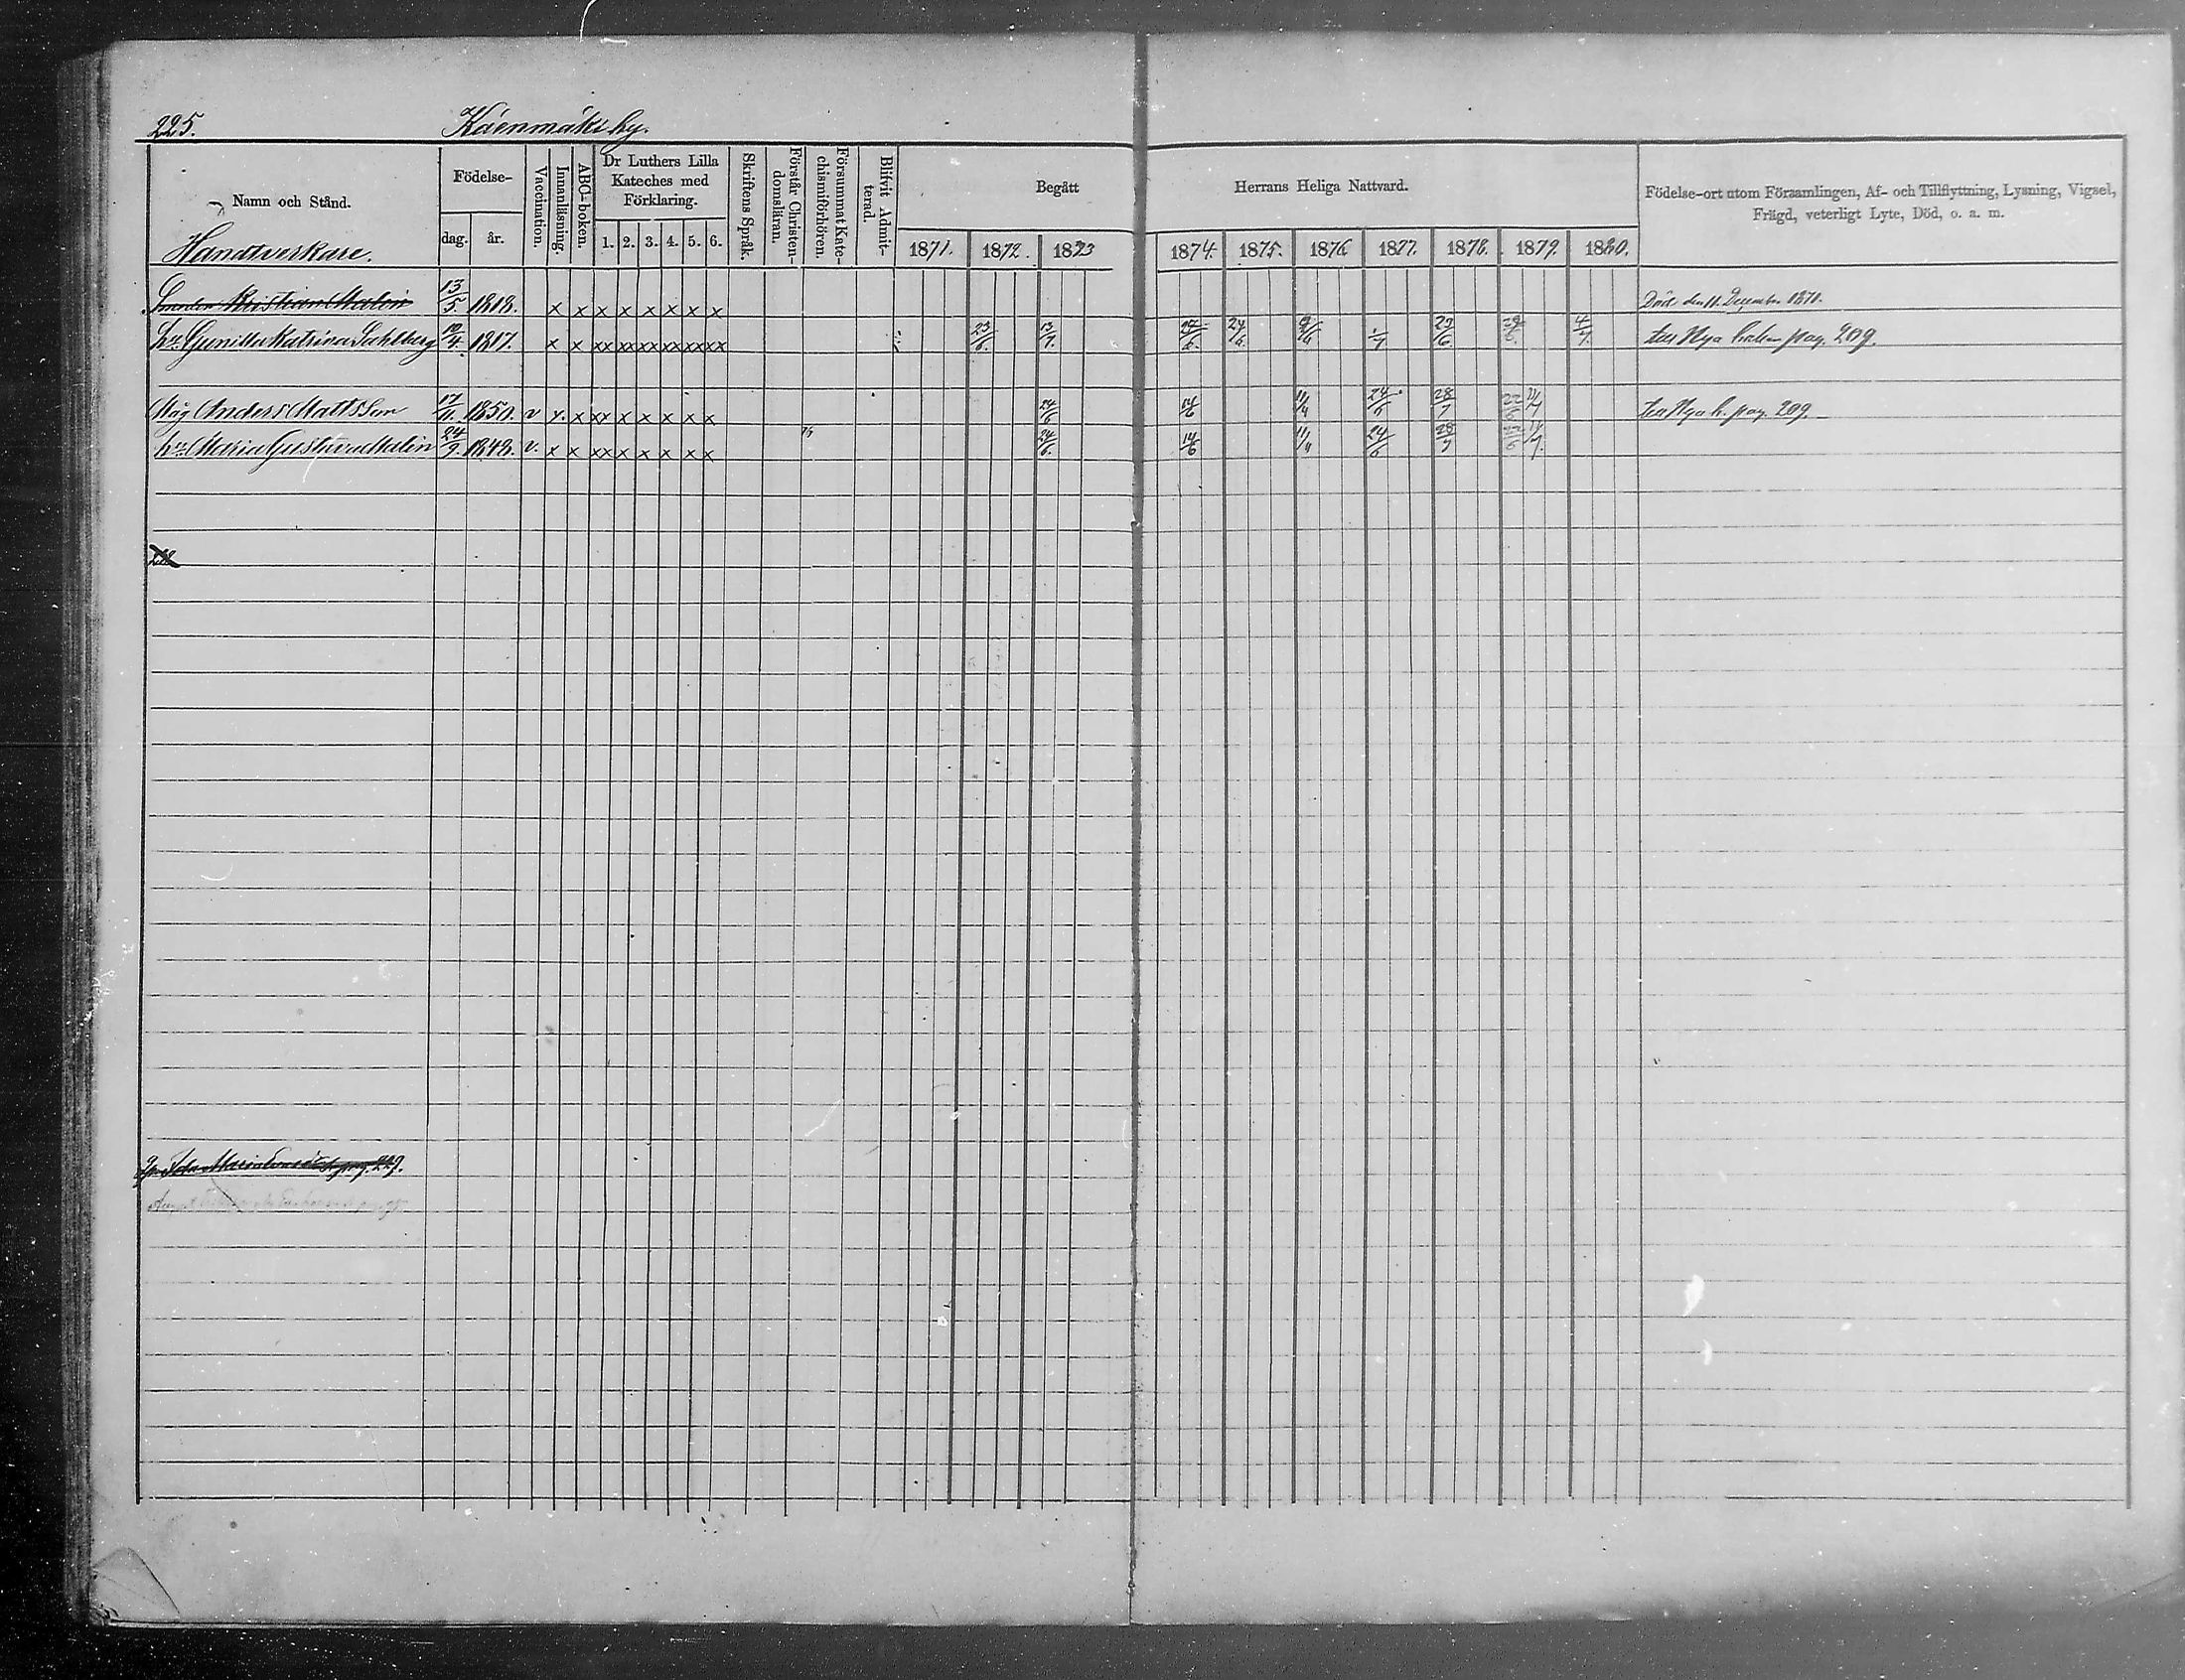 225. Käenmäki by.
Namn och Stånd.
Handtverkare.
Födelse-
dag. år.
Vaccination.
Innanläsning.
ABC-boken.
Dr Luthers Lilla
Kateches med
Förklaring.
1. 2. 3. 4. 5. 6.
Skriftens Språk.
Förstår Christen-
domsläran.
Försummat Kate-
chismiförhören.
Blifvit Admit-
terad.
Begått Herrans Heliga Nattvard.
1871. 1872. 1873 1874. 1875. 1876 1877. 1878. 1879. 1880.
Födelse-ort utom Församlingen, Af- och Tillflyttning, Lysning, Vigsel,
Frägd, veterligt Lyte, Död, o. a. m.
Smeden Kristian Malin 13/5 1818. x x x x x x x x Död den 11. December 1871.
h. Gunilla Katrina Sahlberg 10/4. 1817. x x xx xx xx xx xx xx 23/6. 13/7. 24/6. 23/6 4/7. Nya boken pag. 209.
Måg Anders Mattsson 17/11. 1850. v x. x xx x x x x x 24/6 14/6 11/4 24/6 28/7 22/6 Nya b. pag. 209.
h. Maria Gustava Malin 24/9. 1848. v. x x xx x x x x x 24/6. 14/6 11/4 24/6 28/7 22/6
Ida Maria pag. 229.